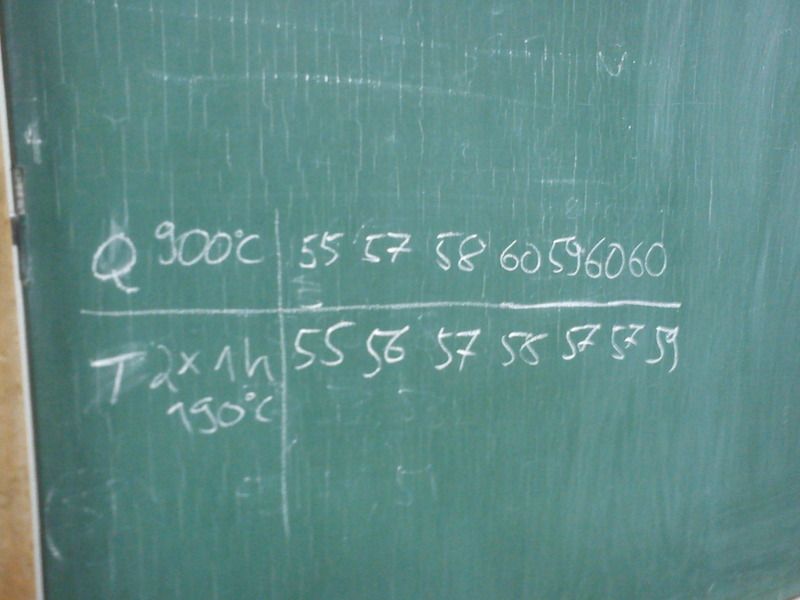 Q 900°C 55 57 58 60 59 60 60
T 2x1h 55 56 57 58 57 57 59
190°C